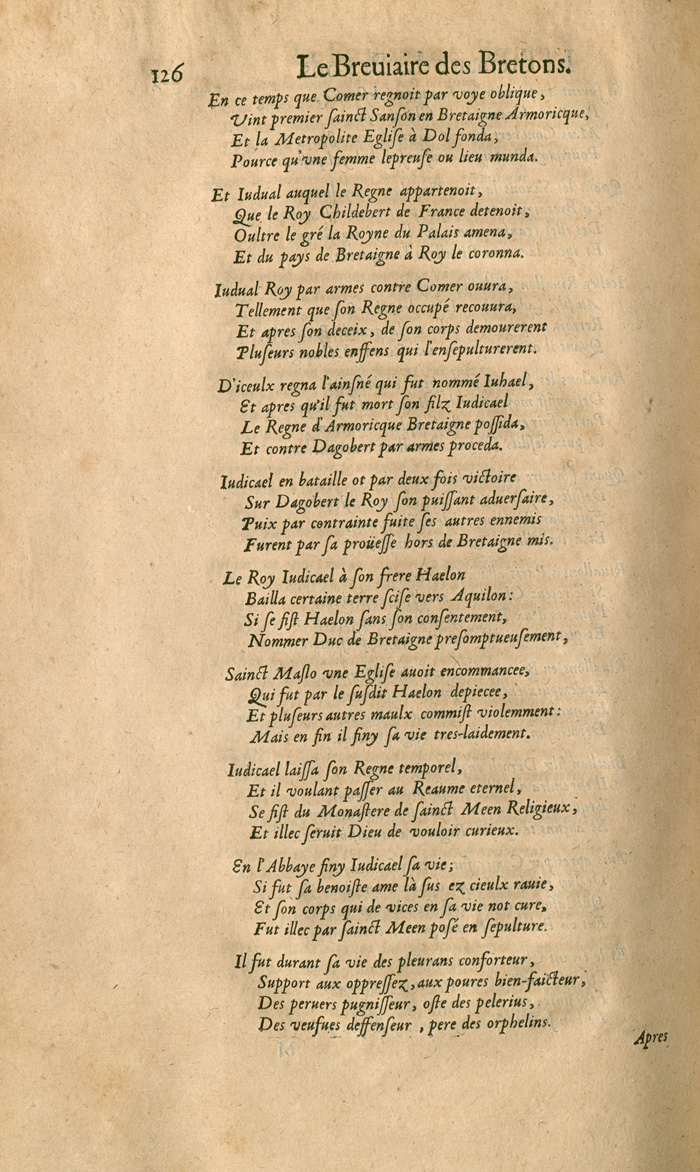 126
Le Breuiaire des Bretons.
En ce temps que Comer regnoit par voye oblique,
Vint premier ſainct Sanſon en Bretaigne Armoricque,
Et la Metropolite Egliſe à Dol fonda,
Pource qu'vne femme lepreuſe ou lieu munda.
Et Iudual auquel le Regne appartenoit,
Que le Roy Childebert de France detenoit,
Oultre le gré la Royne du Palais amena,
Et du pays de Bretaigne à Roy le coronna.
Iudual Roy par armes contre Comer ouura,
Tellement que ſon Regne occupé recouura,
Et apres ſon deceix, de ſon corps demourerent
Pluſeurs nobles enffens qui l'enſepulturerent.
D'iceulx regna l'ainſné qui fut nommé Iuhael,
Et apres qu'il fut mort ſon filz Iudicael
Le Regne d'Armoricque Bretaigne poſſida,
Et contre Dagobert par armes proceda.
Iudicael en bataille ot par deux fois victoire
Sur Dagobert le Roy ſon puiſſant aduerſaire,
Puix par contrainte fuite ſes autres ennemis
Furent par ſa proüeſſe hors de Bretaigne mis.
Le Roy Iudicael à ſon frere Haelon
Bailla certaine terre ſciſe vers Aquilon:
Si ſe fiſt Haelon ſans ſon conſentement,
Nommer Duc de Bretaigne preſomptueuſement,
Sainct Maſlo vne Egliſe auoit encommancee,
Qui fut par le ſuſdit Haelon depiecee,
Et pluſeurs autres maulx commiſt violemment:
Mais en fin il finy ſa vie tres-laidement.
Iudicael laiſſa ſon Regne temporel,
Et il voulant paſſer au Reaume eternel,
Se fiſt du Monaſtere de ſainct Meen Religieux,
Et illec ſeruit Dieu de vouloir curieux.
En l'Abbaye finy Iudicael ſa vie;
Si fut ſa benoiſte ame là ſus ez cieulx rauie,
Et ſon corps qui de vices en ſa vie not cure,
Fut illec par ſainct Meen poſé en ſepulture.
Il fut durant ſa vie des pleurans conforteur,
Support aux oppreſſez, aux poures bien-faicteur,
Des peruers pugniſſeur, oſte des pelerius,
Des veufues deffenſeur, pere des orphelins.
Apres